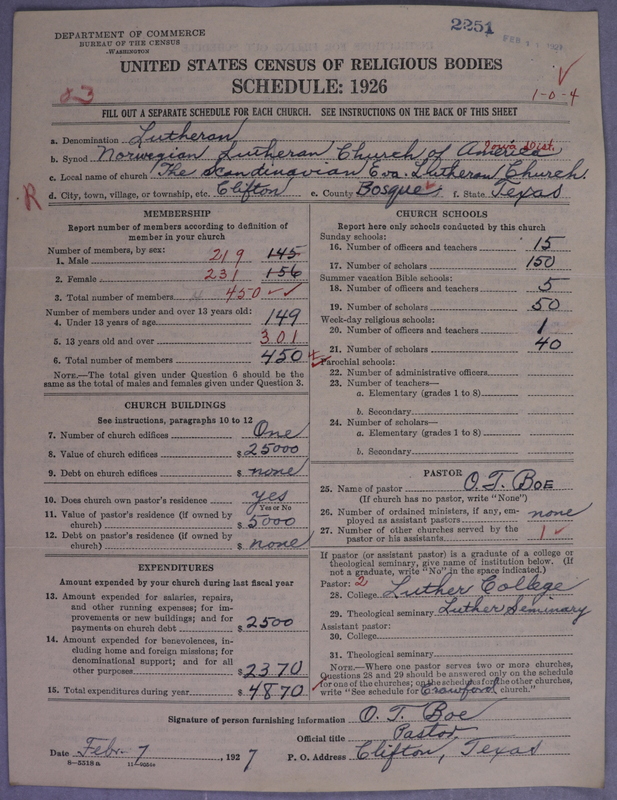 DEPARTMENT OF COMMERCE
BUREAU OF THE CENSUS
WASHINGTON
2251
UNITED STATES CENSUS OF RELIGIOUS BODIES
SCHEDULE: 1926
1-0-4
FILL OUT A SEPARATE SCHEDULE FOR EACH CHURCH. SEE INSTRUCTIONS ON THE BACK OF THIS SHEET
a. Denomination Lutheran
b. Synod Norwegian Lutheran Church of America Iowa Dist.
c. Local name of church The Scandinavian Eva. Lutheran Church.
R d. City, town, village, or township, etc. Clifton e. County Bosque f. State Texas
MEMBERSHIP
Report number of members according to definition of
member in your church
Number of members, by sex:
1. Male 219 145
2. Female 231 156
3. Total number of members 450
Number of members under and over 13 years old:
4. Under 13 years of age 149
5. 13 years old and over 301
6. Total number of members 450
NOTE.—The total given under Question 6 should be the
same as the total of males and females given under Question 3.
CHURCH BUILDINGS
See instructions, paragraphs 10 to 12
7. Number of church edifices One
8. Value of church edifices $ 25000
9. Debt on church edifices $ none
10. Does church own pastor's residence yes
Yes or No
11. Value of pastor's residence (if owned by
church) $ 5000
12. Debt on pastor's residence (if owned by
church) $ none
EXPENDITURES
Amount expended by your church during last fiscal year
13. Amount expended for salaries, repairs,
and other running expenses; for im-
provements or new buildings; and for
payments on church debt $ 2500
14. Amount expended for benevolences, in-
cluding home and foreign missions; for
denominational support; and for all
other purposes $ 2370
15. Total expenditures during year $ 4870
CHURCH SCHOOLS
Report here only schools conducted by this church
Sunday schools:
16. Number of officers and teachers 15
17. Number of scholars 150
Summer vacation Bible schools:
18. Number of officers and teachers 5
19. Number of scholars 50
Week-day religious schools:
20. Number of officers and teachers 1
21. Number of scholars 40
Parochial schools:
22. Number of administrative officers
23. Number of teachers—
a. Elementary (grades 1 to 8)
b. Secondary
24. Number of scholars—
a. Elementary (grades 1 to 8)
b. Secondary
PASTOR
25. Name of pastor O. T. BOE
(If church has no pastor, write "None")
26. Number of ordained ministers, if any, em-
ployed as assistant pastors none
27. Number of other churches served by the
pastor or his assistants 1
If pastor (or assistant pastor) is a graduate of a college or
theological seminary, give name of institution below. (If
not a graduate, write "No" in the space indicated.)
Pastor: 2
28. College Luther College
29. Theological seminary Luther Seminary
Assistant pastor:
30. College
31. Theological seminary
NOTE.—Where one pastor serves two or more churches,
Questions 28 and 29 should be answered only on the schedule
for one of the churches; on the schedules for the other churches,
write "See schedule for Crawford church."
Signature of person furnishing information O. T. Boe
Official title Pastor.
Date Febr. 7, 1927 P. O. Address Clifton, Texas
8-5518 a